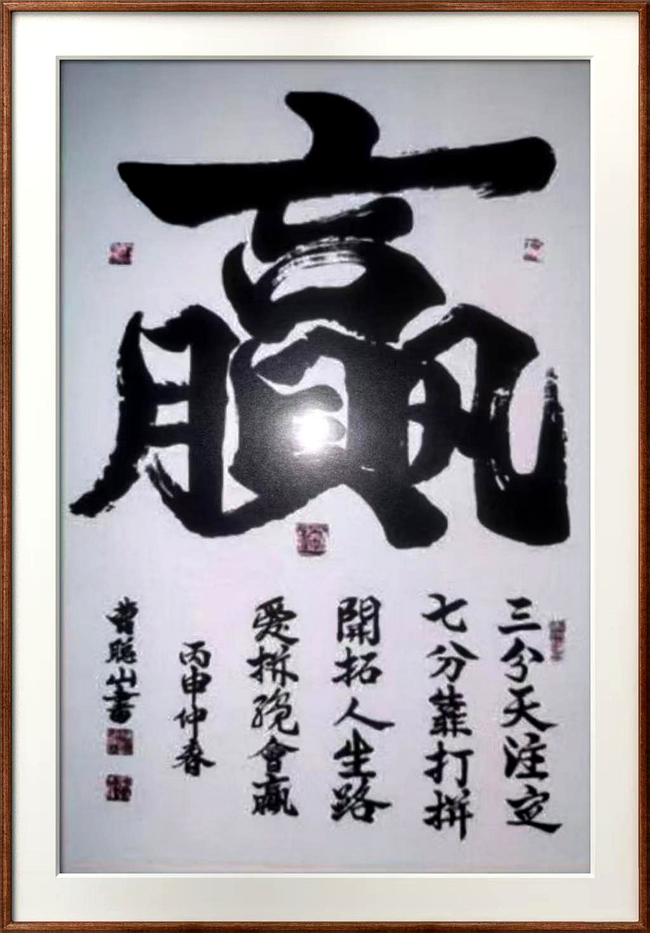 贏
三分天注定
七分靠打拼
開拓人生路
愛拼總會贏
丙申仲春
曹聰山書